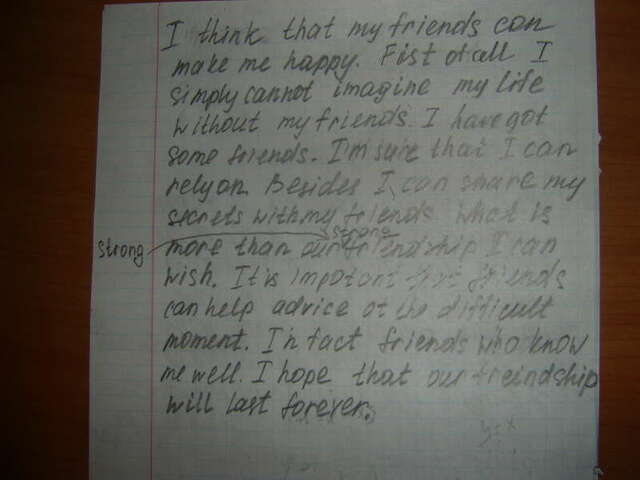 I think that my friends can
make me happy. Fist of all I
simply cannot imagine my life
without my friends. I have got
some friends. I'm sure that I can
rely on. Besides I can share my
secrets with my friends. What is
strong
strong more than our friendship I can
wish. It is impotant that friends
can help advice at the difficult
moment. I'n fact friends who know
me well. I hope that our freindship
will last forever.
y=x